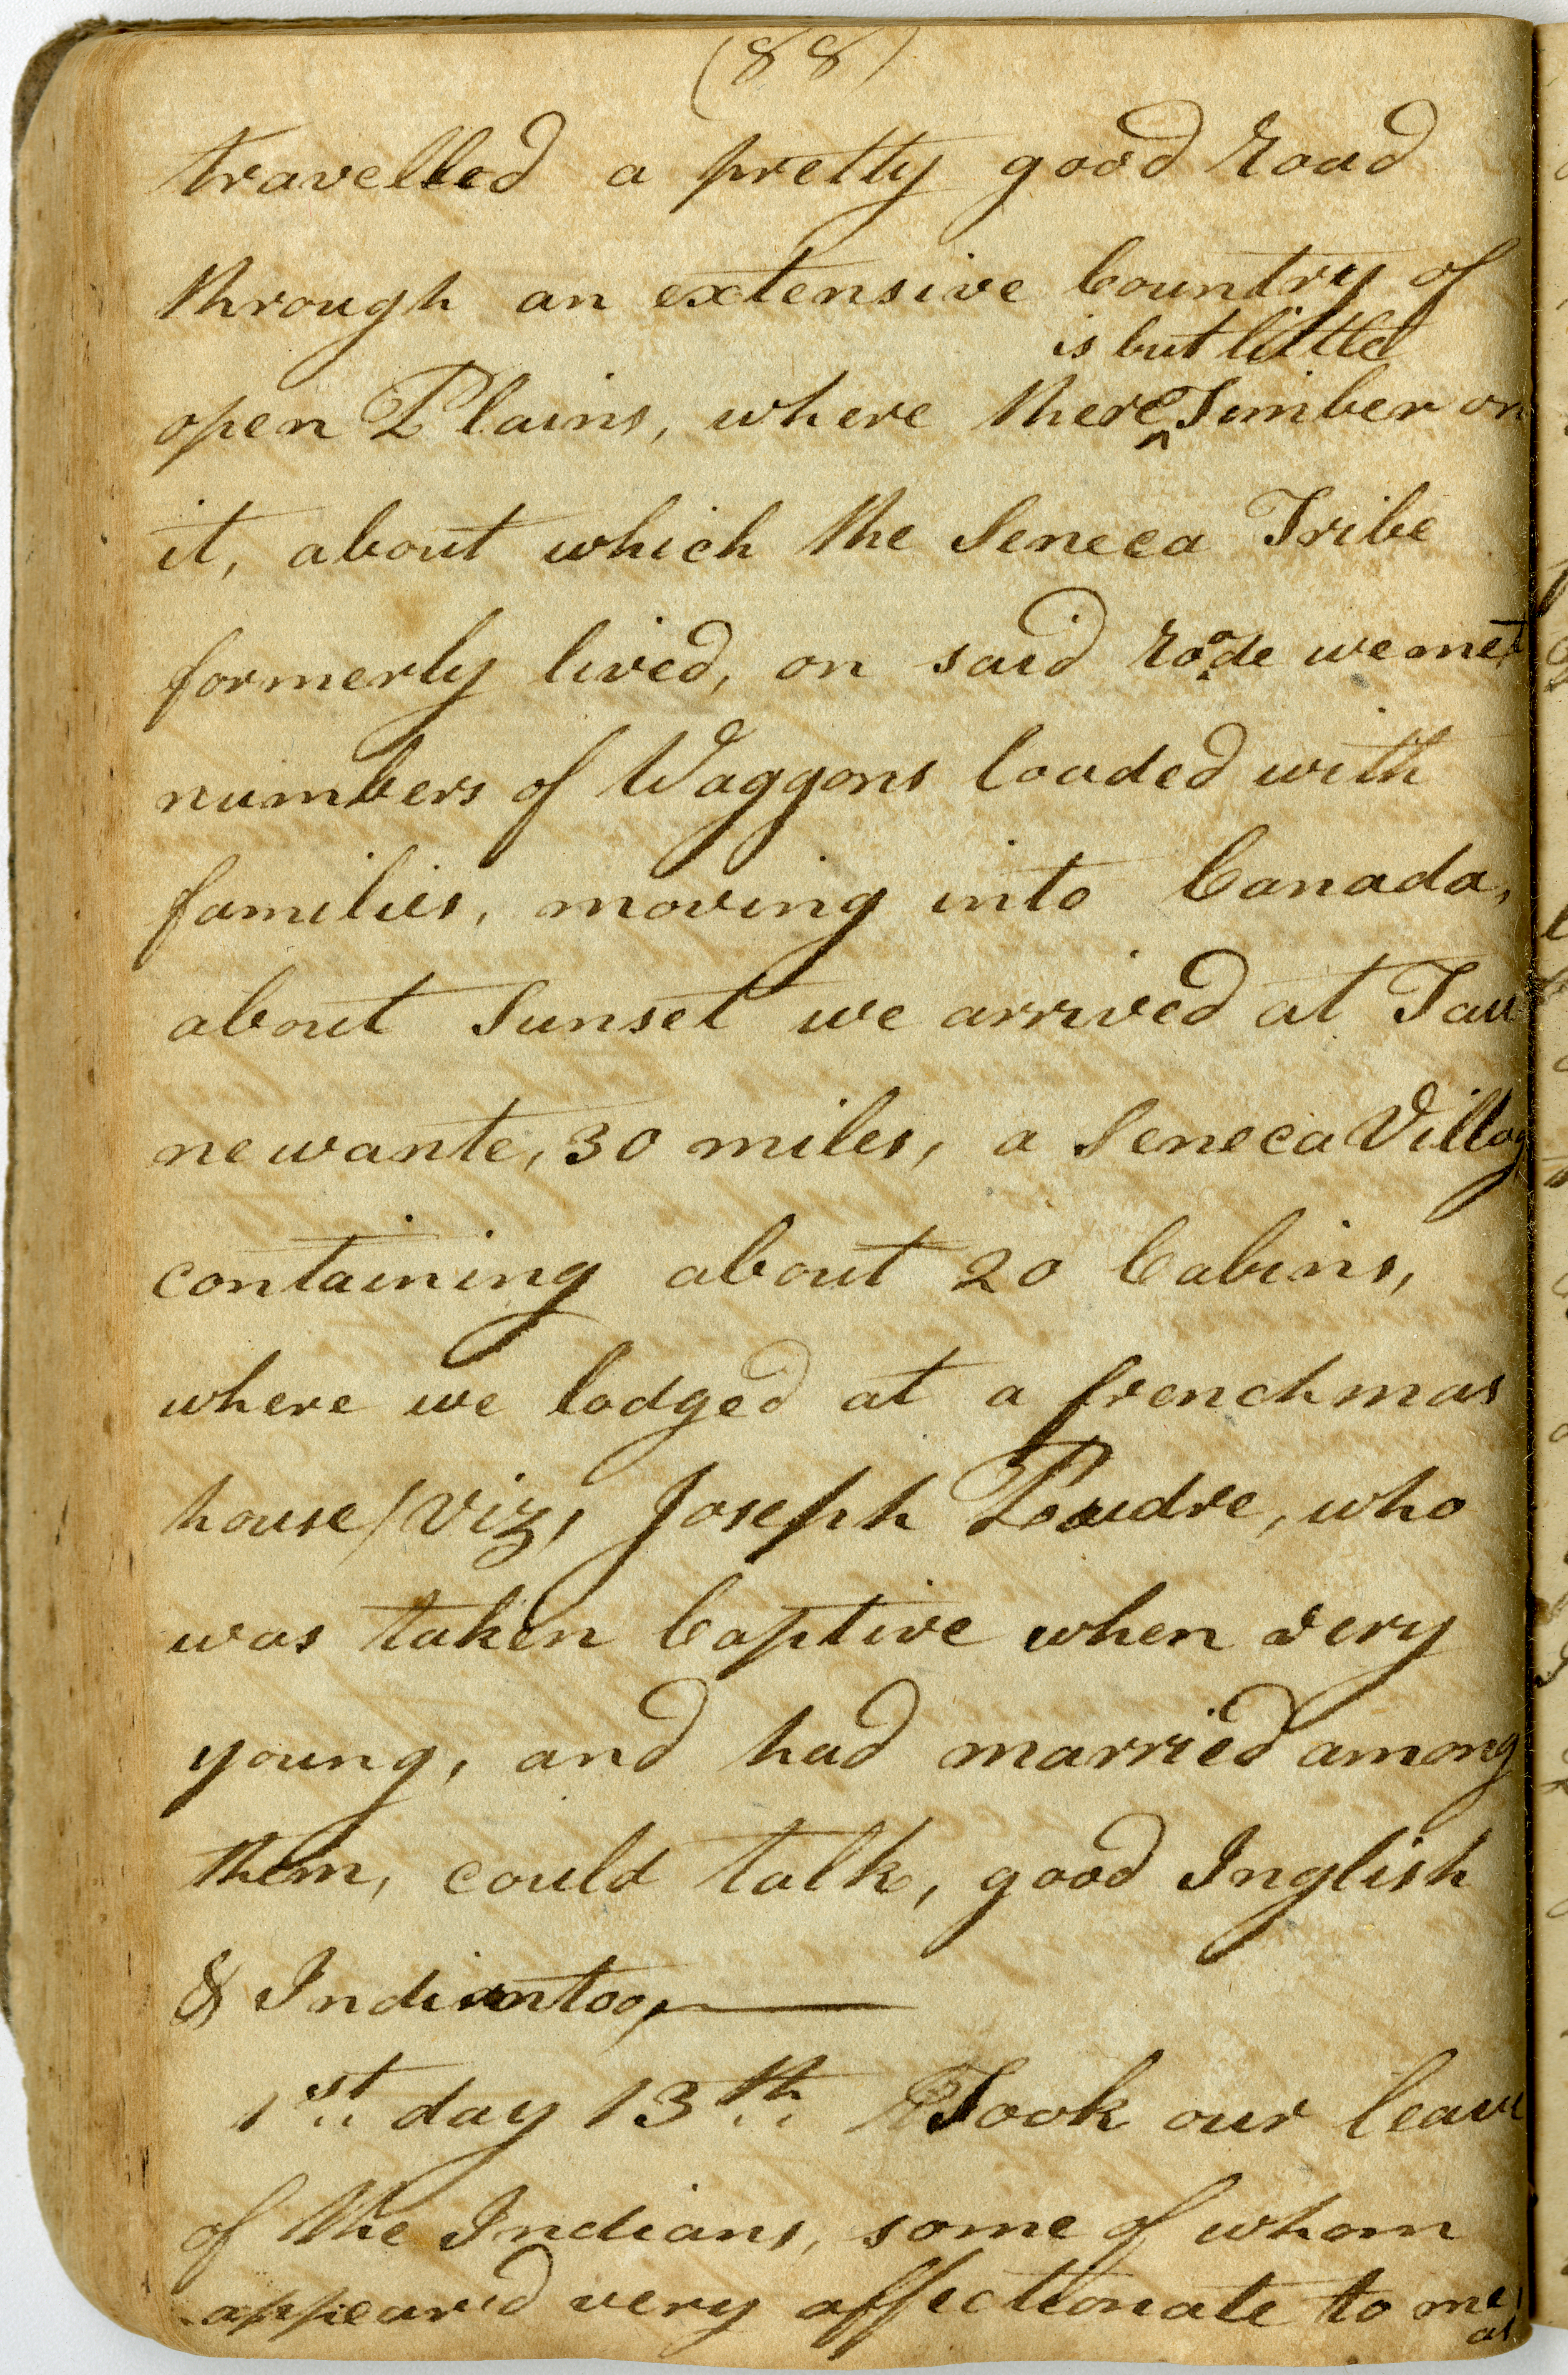 (88)
travelled a pretty good road
through an extensive Country of
is but little
open Plains, where there ^ Timber on
it, about which the Seneca Tribe
formerly lived, on said roade we met
numbers of Waggons loaded with
families, moving into Canada,
about Sunset we arrived at Tau
newante, 30 miles, a Seneca Villag
containing about 20 Cabins,
where we lodged at a frenchmas
house / Viz, Joseph Poudre, who
was taken Captive when very
young, and had married among
them, could talk, good Inglish
& Indian too,
1st day 13th Took our leave
of the Indians, some of whom
appeared very affectionate to me,
as